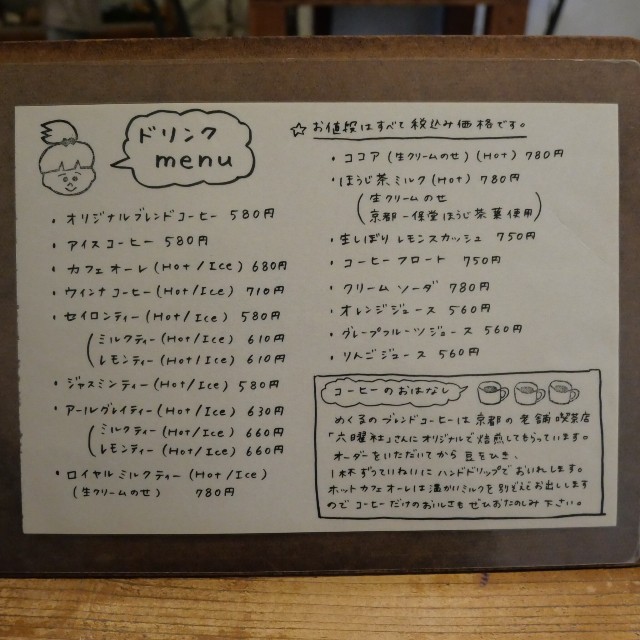 ドリンク
menu
・オリジナルブレンドコーヒー 580円
・アイスコーヒー 580円
・カフェオーレ(Hot/Ice) 680円
・ウィンナコーヒー(Hot/Ice) 710円
・セイロンティー(Hot/Ice) 580円
(ミルクティー(Hot/Ice) 610円
レモンティー(Hot/Ice) 610円
・ジャスミンティー(Hot/Ice) 580円
・アールグレイティー(Hot/Ice) 630円
(ミルクティー(Hot/Ice) 660円
レモンティー(Hot/Ice) 660円
・ロイヤルミルクティー(Hot/Ice)
(生クリームのせ) 780円
☆お値段はすべて税込み価格です。
・ココア(生クリームのせ)(Hot) 780円
・ほうじ茶ミルク(Hot) 780円
(生クリームのせ
京都一保堂ほうじ茶葉使用)
・生しぼりレモンスカッシュ 750円
・コーヒーフロート 750円
・クリームソーダ 780円
・オレンジジュース 560円
・グレープフルーツジュース 560円
・りんごジュース 560円
コーヒーのおはなし
めぐるのブレンドコーヒーは京都の老舗喫茶店
「六曜社」さんにオリジナルで焙煎してもらっています。
オーダーをいただいてから豆をひき、
1杯ずつていねいにハンドドリップでおいれします。
ホットカフェオーレは温かいミルクを別ぞえでお出しします
のでコーヒーだけのおいしさもぜひおたのしみ下さい。